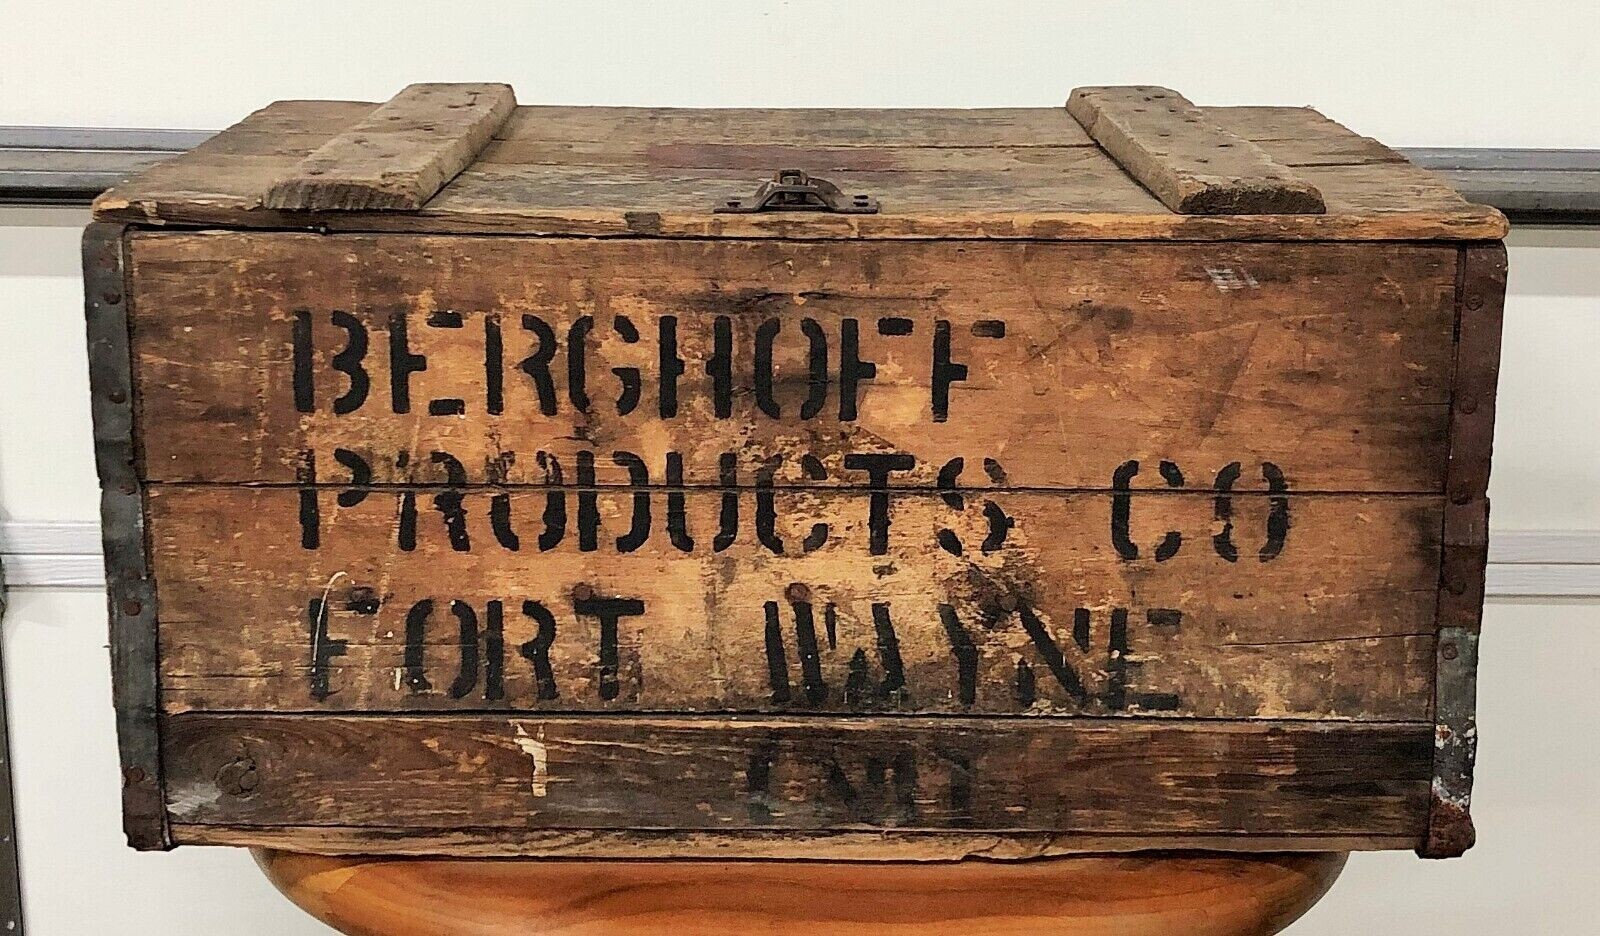 BERGHOFF
PRODUCTS CO
FORT WAYNE